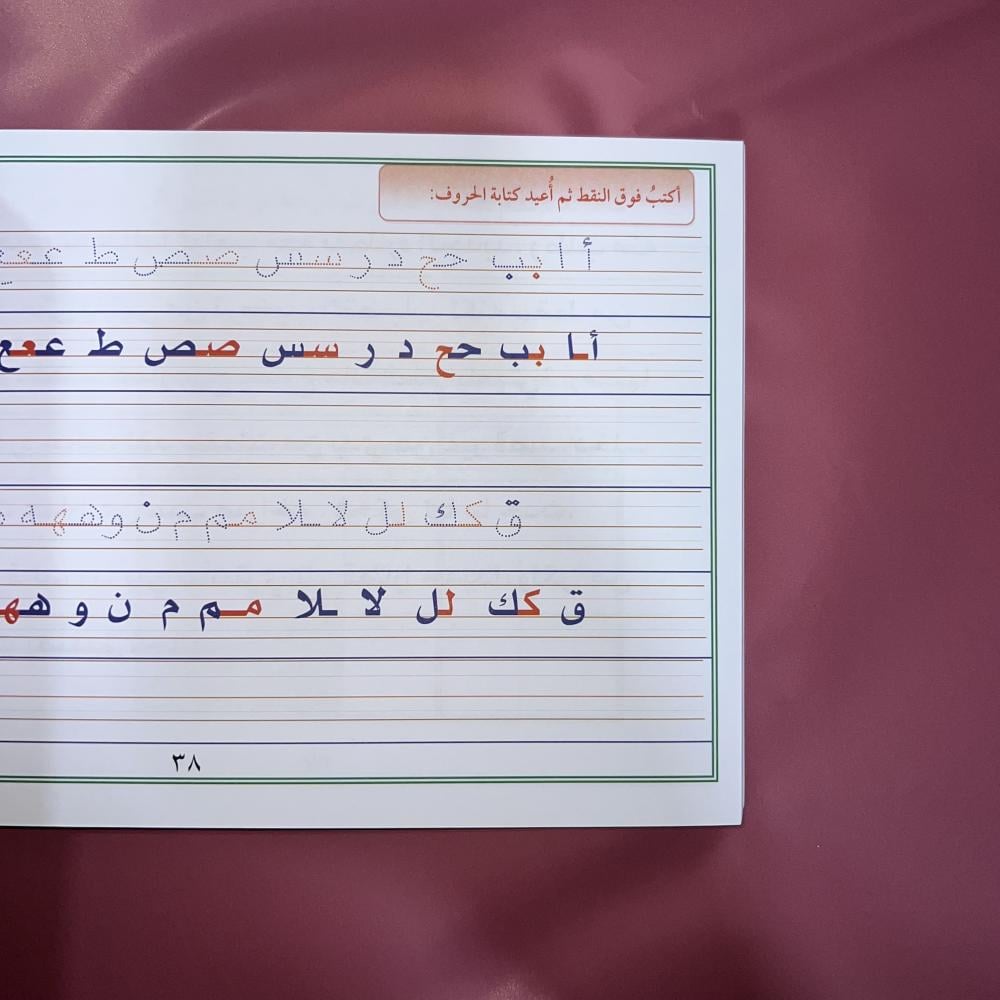 أكتبُ فوق النقط ثم أُعيد كتابة الحروف:
أ ا ببب حح د ر سس صص ط ععع
أ ـا ببب حح د ر سس صص ط ععع
ق كك لل لا ـلا مم م ن و ههه
ق كك لل لا ـلا مم م ن و هه
٣٨